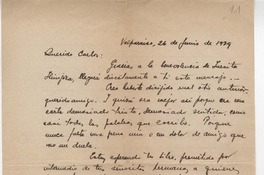 Valparaíso, 26 de Junio de 1939
Querido Carlos:
Gracias a la benevolencia de
llegará directamente a ti este mensaje...
Creo haberte dirigido mal otra anterior,
querido amigo. I quizá era mejor así porque era
carta demasiado triste, demasiado sentida, como
casi todas las palabras que escribo. Porque
nunca falta una pena mia o un dolor de amigo que
me duela.
Estoy esperando tu libro, prometido por
intermedio de tu hermana, a quienes